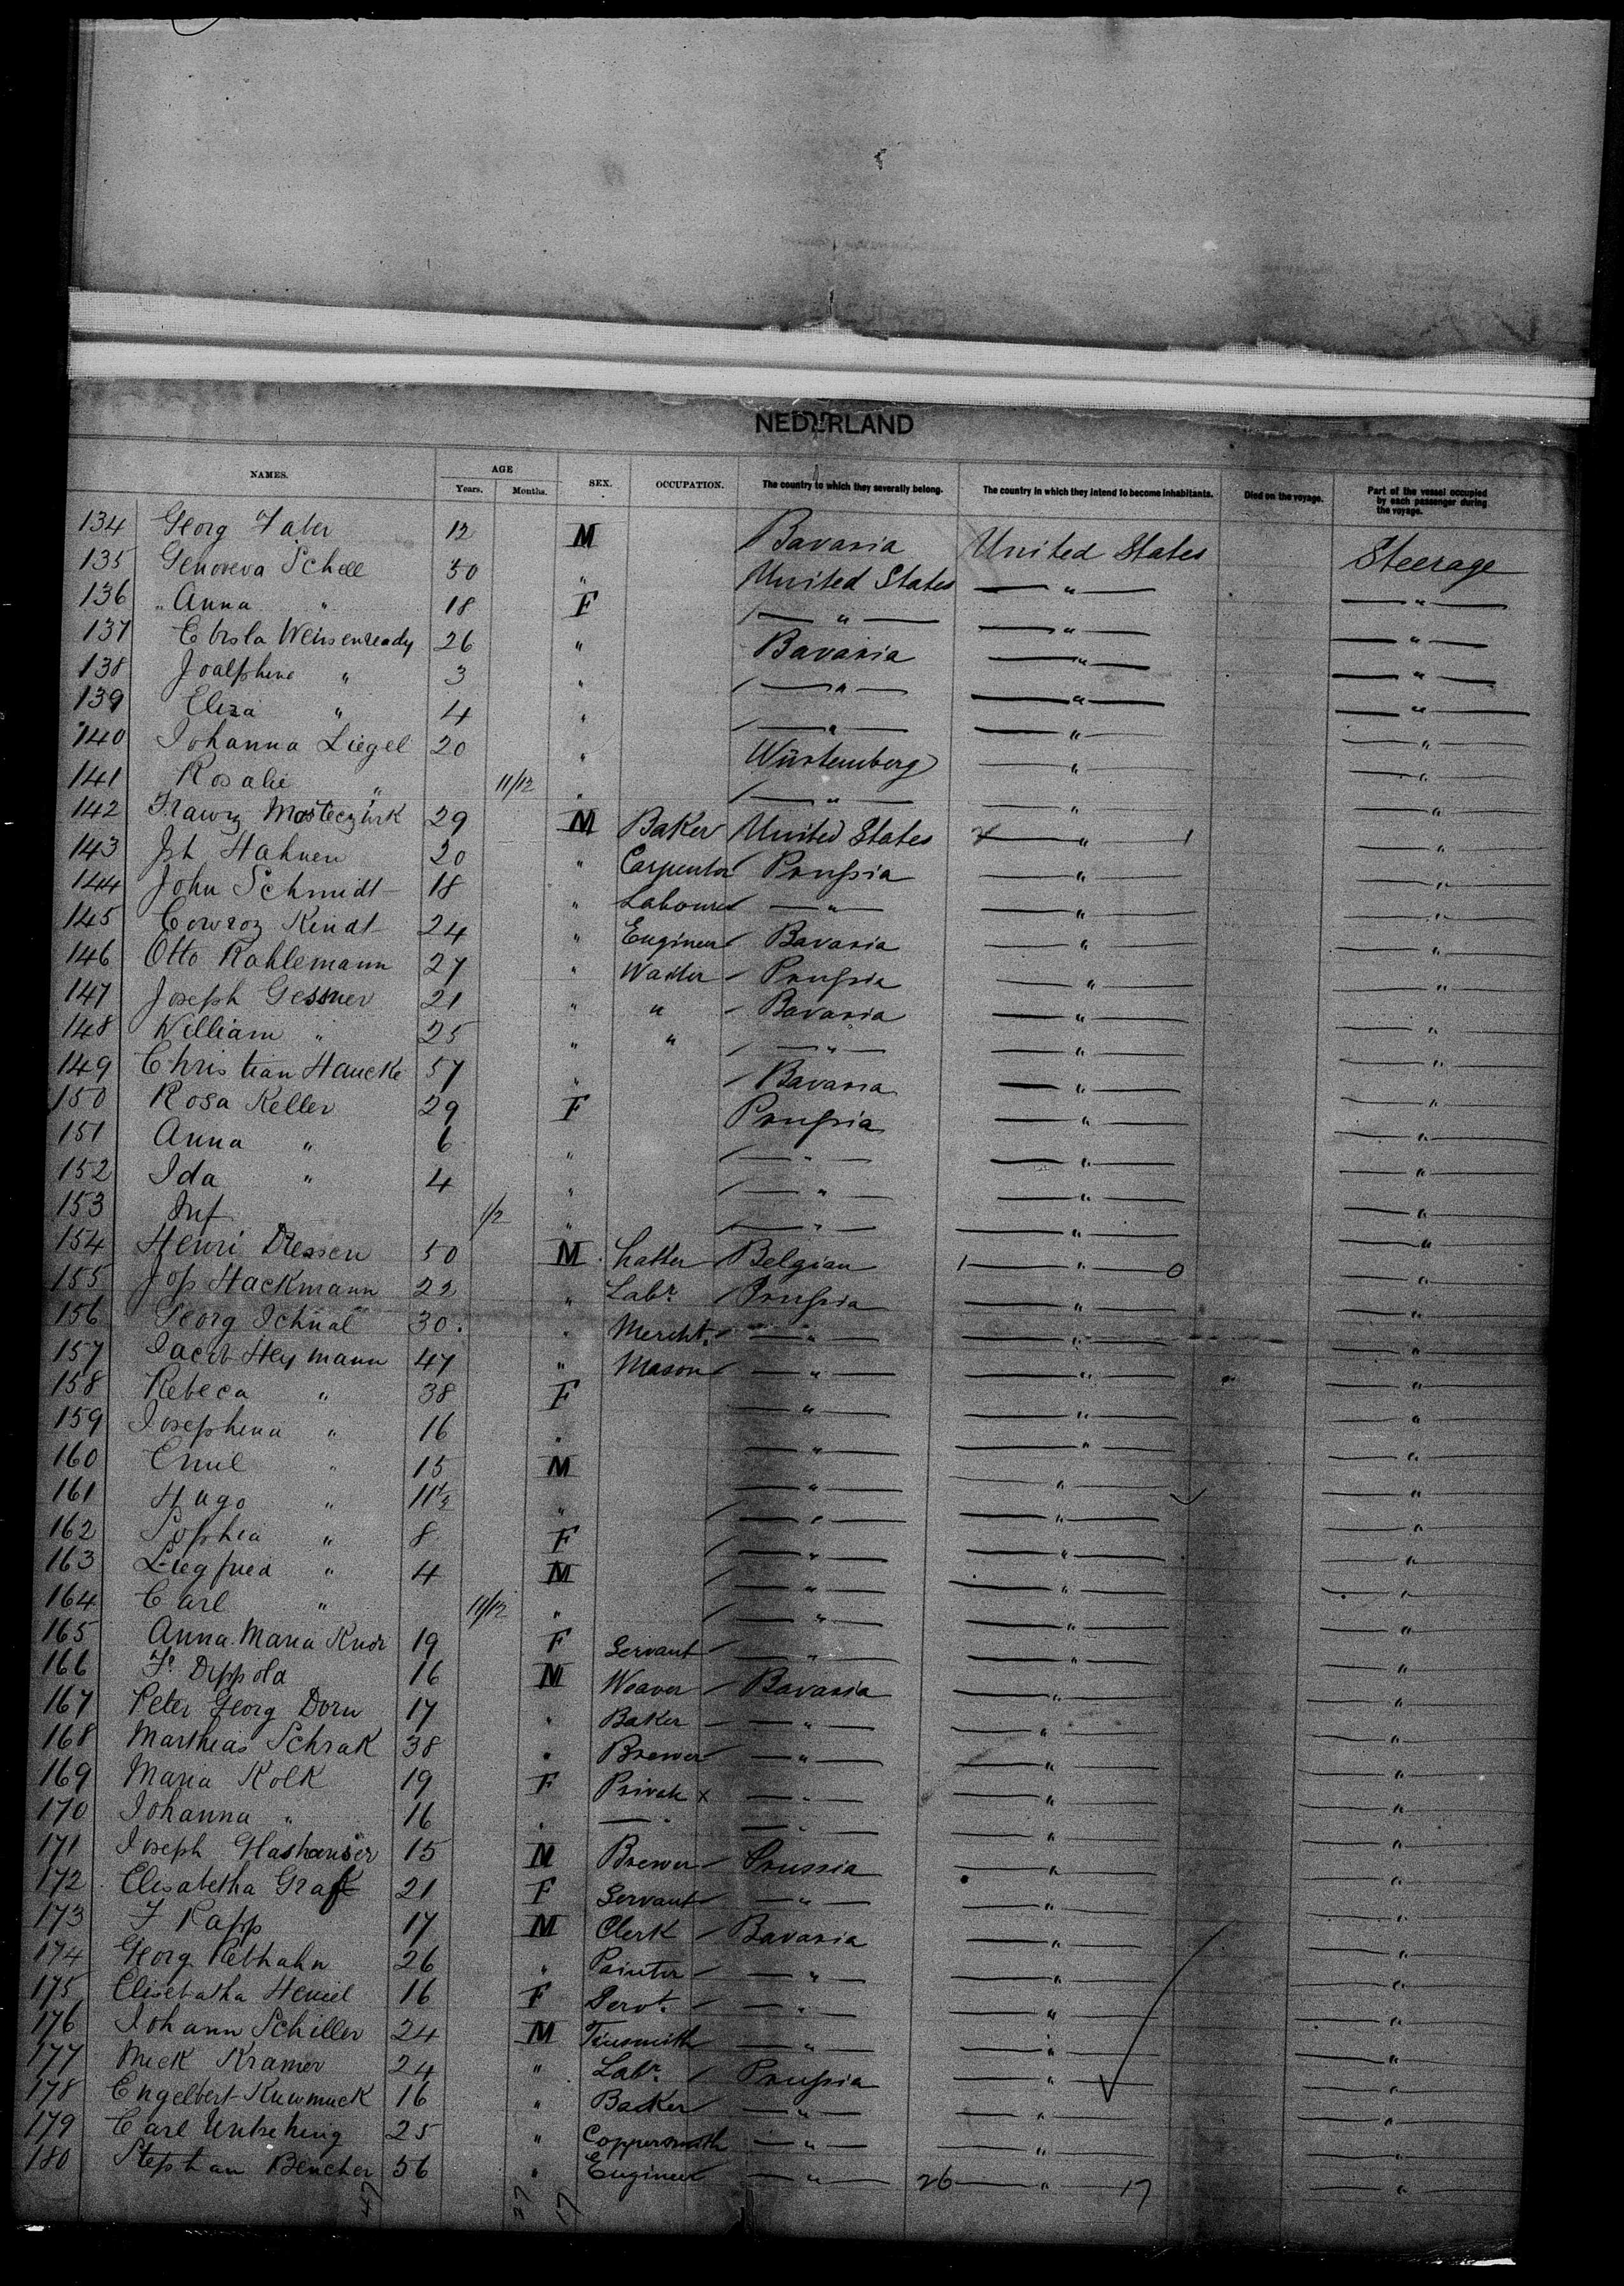 NEDERLAND
NAMES. AGE Years. Months. SEX. OCCUPATION. The country to which they severally belong. The country in which they intend to become inhabitants. Died on the voyage. Part of the vessel occupied by each passenger during the voyage.
134 Georg Faber 12 M Bavaria United States Steerage
135 Genoveva Schell 50 " United States — " — — " —
136 " Anna " 18 F — " — — " — — " —
137 26 " Bavaria — " — — " —
138 " 3 " — " — — " — — " —
139 Eliza " 4 " — " — — " — — " —
140 Johanna Liegel 20 " Würtemberg — " — — " —
141 Rosalie " 11/12 " — " — — " — — " —
142 29 M Baker United States — " — — " —
143 Jsh Hahnen 20 " Carpenter Prussia — " — — " —
144 John Schmidt 18 " Labourer — " — — " — — " —
145 Kindt 24 " Engineer Bavaria — " — — " —
146 Otto Kahlemann 27 " Waiter Prussia — " — — " —
147 Joseph Gessner 21 " " Bavaria — " — — " —
148 William " 25 " " — " — — " — — " —
149 Christian Haucke 57 " Bavaria — " — — " —
150 Rosa Keller 29 F Prussia — " — — " —
151 Anna " 6 " — " — — " — — " —
152 Ida " 4 " — " — — " — — " —
153 Inf 1/2 " — " — — " — — " —
154 Henri Dressen 50 M hatter Belgian 1 — " — 0 — " —
155 Jos Hackmann 22 " Labr. Prussia — " — — " —
156 Georg 30. " Mercht. — " — — " — — " —
157 Jacob Heymann 47 " Mason — " — — " — — " —
158 Rebeca " 38 F — " — — " — — " —
159 Josephena " 16 " — " — — " — — " —
160 Emil " 15 M — " — — " — — " —
161 Hugo " 11½ " — " — — " — — " —
162 Sophia " 8 F — " — — " — — " —
163 Siegfried " 4 M — " — — " — — " —
164 Carl " 11/12 " — " — — " — — " —
165 Anna Maria 19 F Servant — " — — " — — " —
166 Fr. Dippold 16 M Weaver Bavaria — " — — " —
167 Peter Georg Dorn 17 " Baker — " — — " — — " —
168 Marthias Schrak 38 " Brewer — " — — " — — " —
169 Maria Kolk 19 F Privat x — " — — " — — " —
170 Johanna " 16 " — " — " — — " — — " —
171 Joseph Glashauser 15 M Brewer Prussia — " — — " —
172 Elisabetha Graf 21 F Servant — " — — " — — " —
173 F Rapp 17 M Clerk Bavaria — " — — " —
174 Georg Rebhahn 26 " Painter — " — — " — — " —
175 Elisebatha 16 F Servt. — " — — " — — " —
176 Johann Schiller 24 M Tinsmith — " — — " — — " —
177 Nick Kramer 24 " Labr. Prussia — " — — " —
178 Engelbert 16 " Backer — " — — " — — " —
179 Carl 25 " Coppersmith — " — — " — — " —
180 Stephan Bencher 56 " Engineer — " — 26 — " — 17 — " —
47 27 17